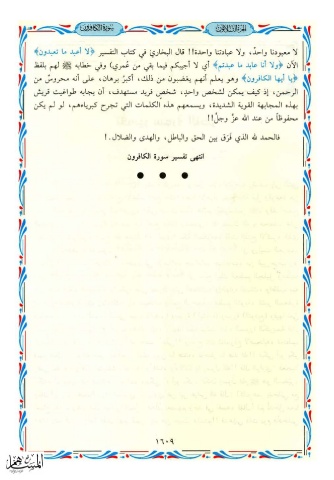 الجزء الثلاثون
سورة الكافرون
لا معبودنا واحدٌ، ولا عبادتنا واحدة!! قال البخاري في كتاب التفسير ﴿لا أعبد ما تعبدون﴾
الآن ﴿ولا أنا عابد ما عبدتم﴾ أي لا أجيبكم فيما بقي من عُمري) وفي خطابه ﷺ لهم بلفظ
﴿يا أيها الكافرون﴾ وهو يعلم أنهم يغضبون من ذلك، أكبرُ برهان، على أنه محروسٌ من
الرحمن، إذ كيف يمكن لشخصٍ واحدٍ، شخص فريد مستهدف، أن يجابه طواغيت قريش
بهذه المجابهة القوية الشديدة، ويسمعهم هذه الكلمات التي تجرح كبرياءهم، لو لم يكن
محفوظاً من عند الله عزَّ وجلَّ!!
فالحمد لله الذي فرَّق بين الحق والباطل، والهدى والضلال.!
انتهى تفسير سورة الكافرون
١٦٠٩